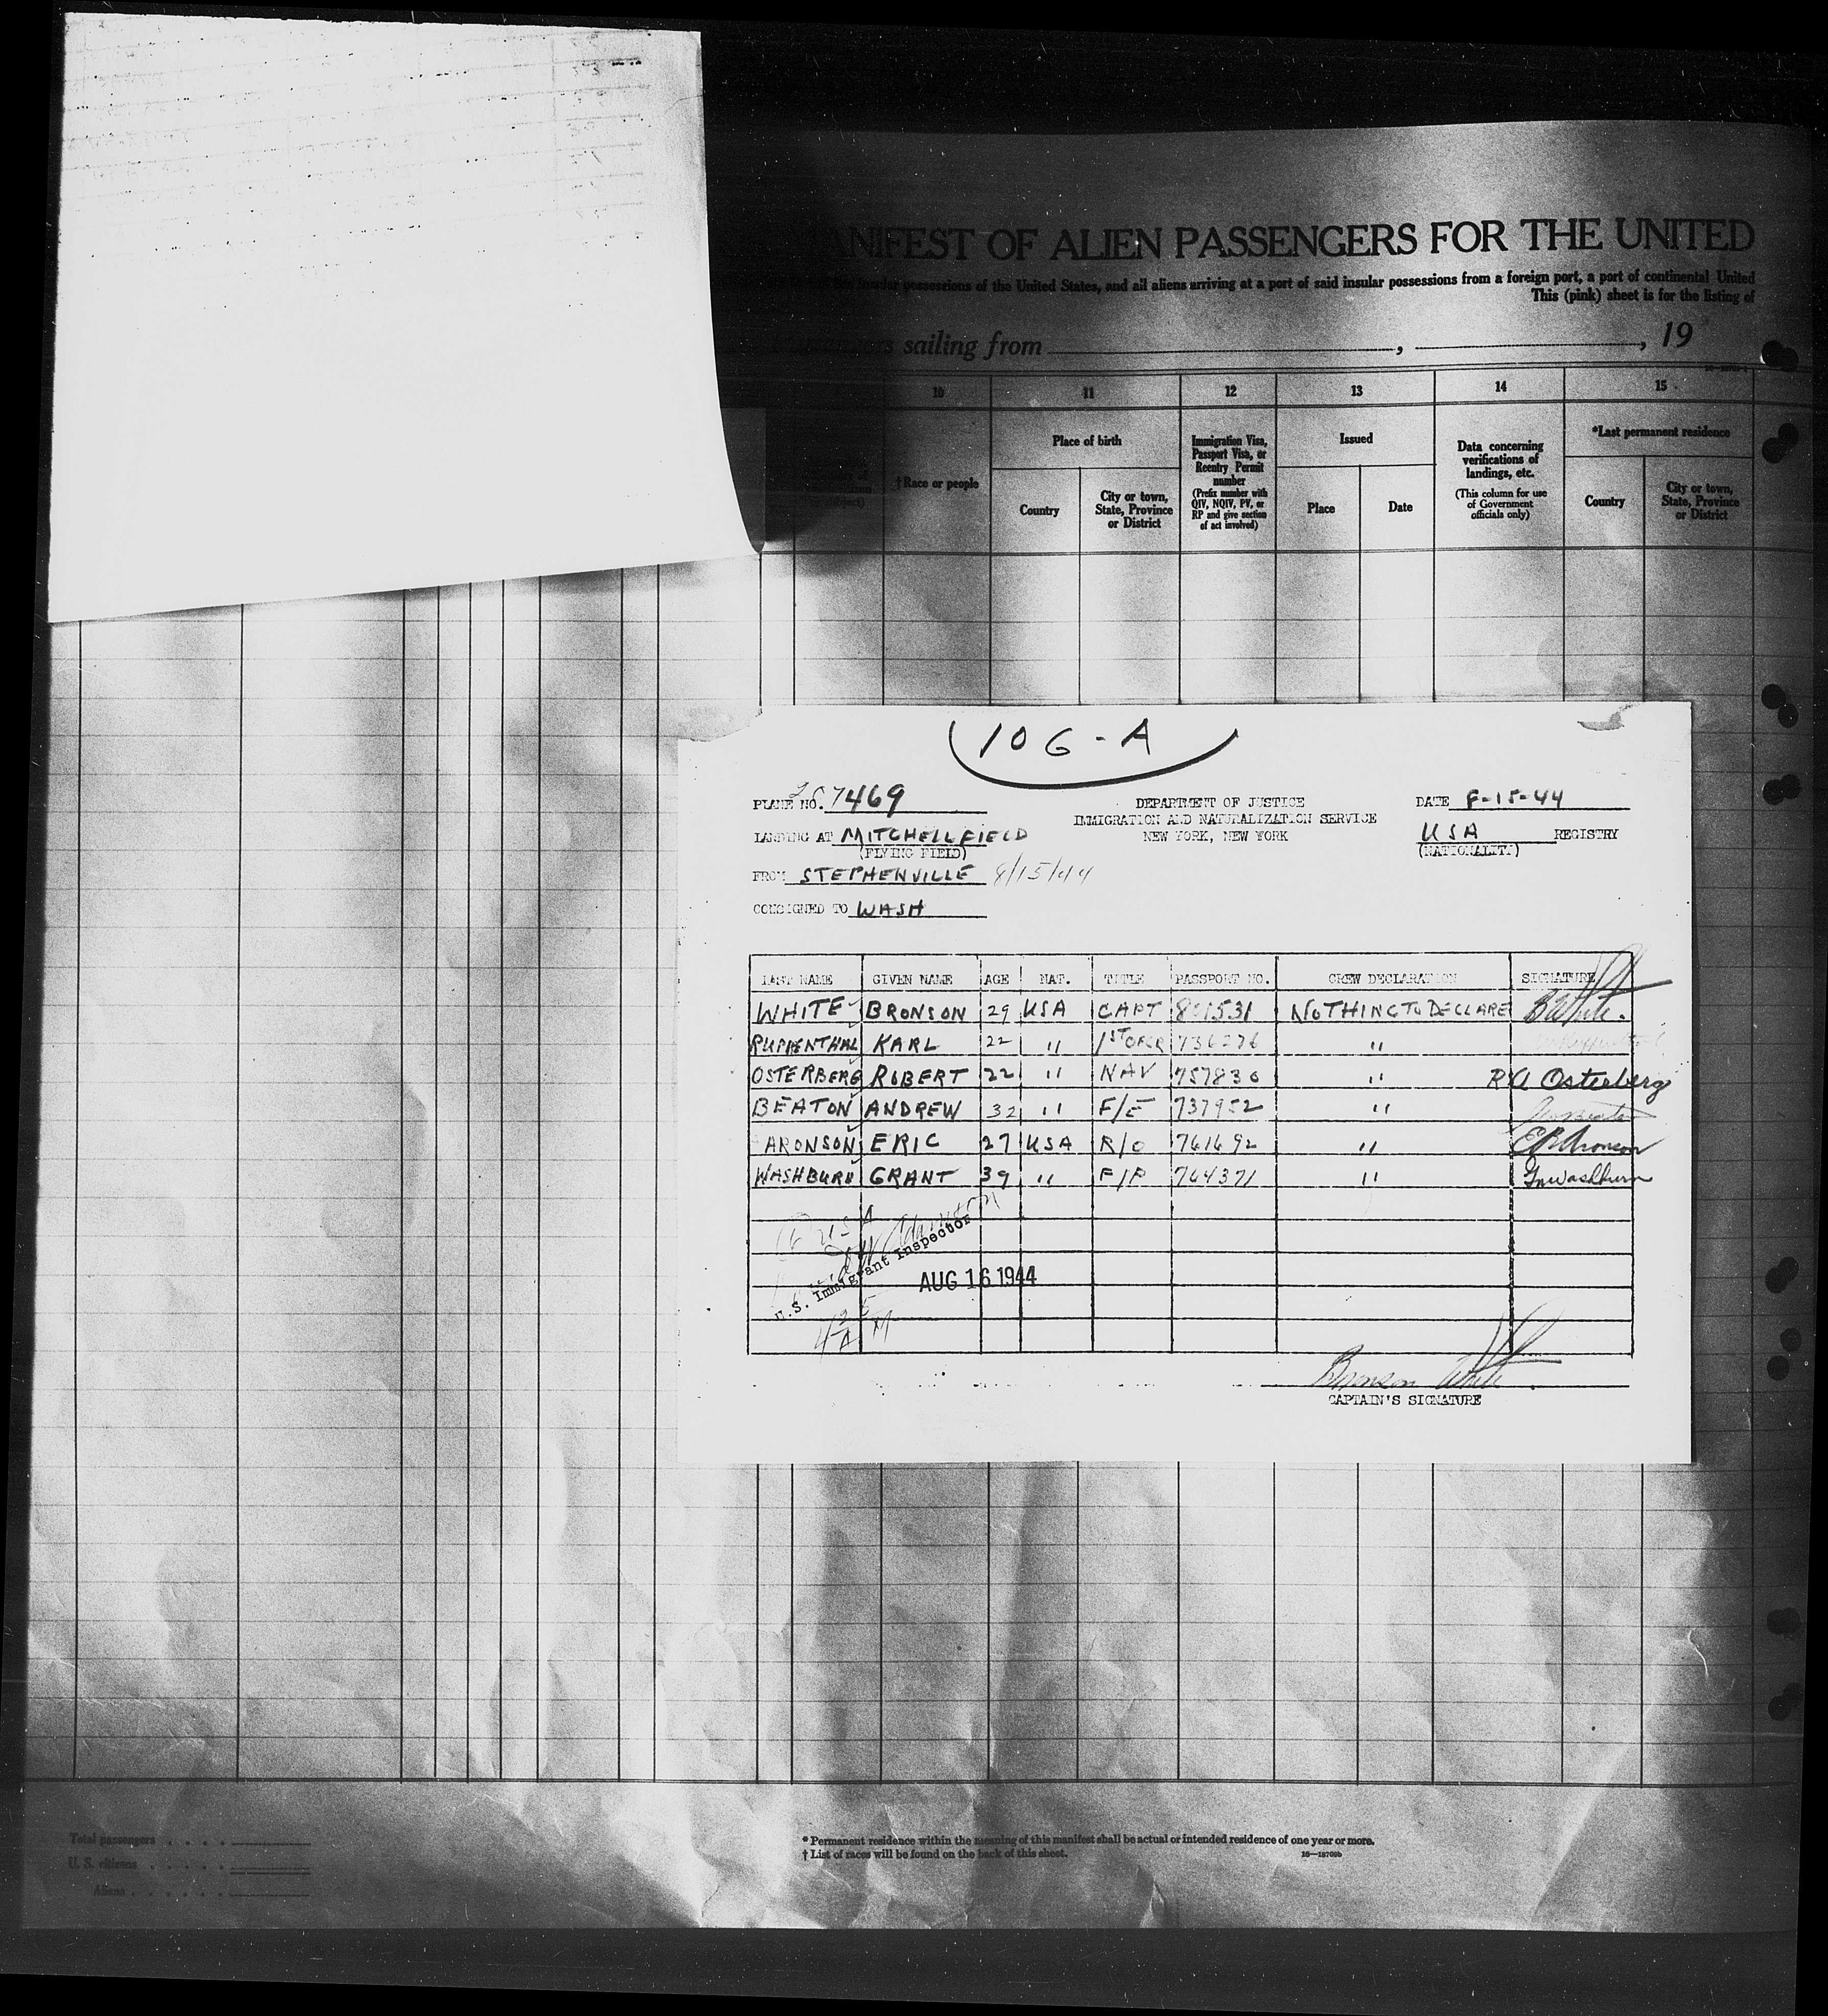 MANIFEST OF ALIEN PASSENGERS FOR THE UNITED
insular possessions of the United States, and all aliens arriving at a port of said insular possessions from a foreign port, a port of continental United
This (pink) sheet is for the listing of
sailing from , , 19
10 11 12 13 14 15
†Race or people
Place of birth
Country
City or town, State, Province or District
Immigration Visa, Passport Visa, or Reentry Permit number
(Prefix number with QIV, NQIV, PV, or RP and give section of act involved)
Issued
Place
Date
Data concerning verifications of landings, etc.
(This column for use of Government officials only)
*Last permanent residence
Country
City or town, State, Province or District
106-A
PLANE NO. 7469
DEPARTMENT OF JUSTICE
DATE 8-15-44
LANDING AT MITCHELL FIELD
IMMIGRATION AND NATURALIZATION SERVICE
USA REGISTRY
(FLYING FIELD)
NEW YORK, NEW YORK
(NATIONALITY)
FROM STEPHENVILLE 8/15/44
CONSIGNED TO WASH
LAST NAME GIVEN NAME AGE NAT. TITLE PASSPORT NO. CREW DECLARATION SIGNATURE
WHITE BRONSON 29 USA CAPT 801531 NOTHING TO DECLARE B White.
RUPPENTHAL KARL 22 " 1ST OFCR 736276 "
OSTERBERG ROBERT 22 " NAV 757830 " R A Osterberg
BEATON ANDREW 32 " F/E 737952 "
ARONSON ERIC 27 USA R/O 761692 " E Aronson
WASHBURN GRANT 39 " F/P 764371 " G Washburn
6 USA
U.S. Immigrant Inspector
AUG 16 1944
Bronson White
CAPTAIN'S SIGNATURE
Total passengers
U. S. citizens
Aliens
* Permanent residence within the meaning of this manifest shall be actual or intended residence of one year or more.
† List of races will be found on the back of this sheet.